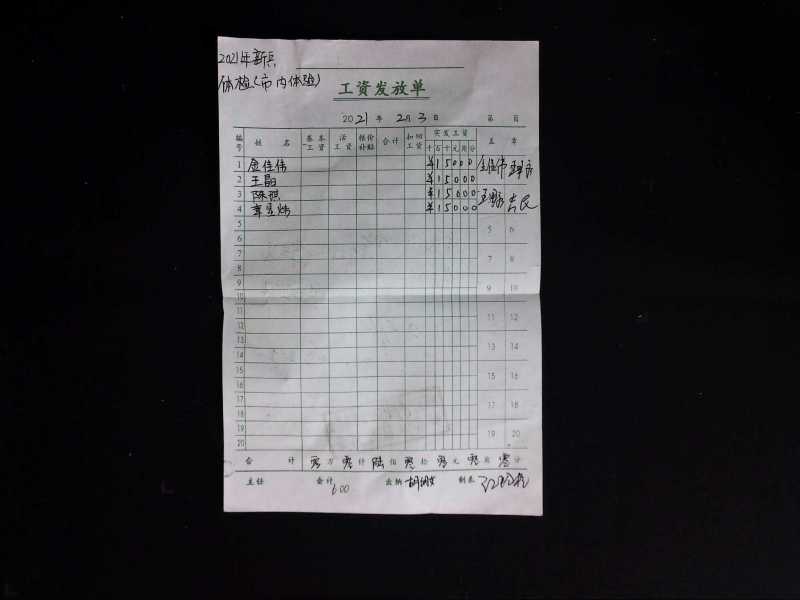 2021年新兵
体检(市内体验)
工资发放单
2021 年 2月 3日 第 页
编号 姓 名 基本工资 活工资 报价补贴 合计 扣回工资 实发工资 盖 章
千 百 十 元 角 分
1 金佳伟 ¥15000 金佳伟
2 王晶 ¥15000
3 陈琪 ¥15000
4 章昱炜 ¥15000
5 5 6
6
7 7 8
8
9 9 10
10
11 11 12
12
13 13 14
14
15 15 16
16
17 17 18
18
19 19 20
20
合 计 零万零仟陆佰零拾零元零角零分
主任 会计 出纳 制表
600